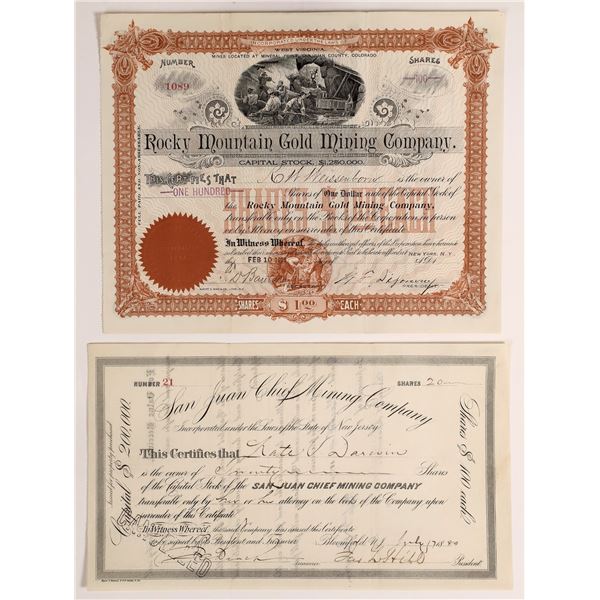 INCORPORATED UNDER THE LAWS OF
WEST VIRGINIA
MINES LOCATED AT MINERAL POINT, SAN JUAN COUNTY, COLORADO.
NUMBER
SHARES
1089
100
Rocky Mountain Gold Mining Company.
CAPITAL STOCK, $1,250,000.
THIS CERTIFIES THAT A. W. Weissenborn is the owner of
ONE HUNDRED Shares of One Dollar each of the Capital Stock of
the Rocky Mountain Gold Mining Company,
transferable only on the Books of the Corporation, in person
or by Attorney on surrender of this Certificate.
In Witness Whereof,
NEW YORK, N.Y.
FEB 10
SHARES $1.00 EACH
NUMBER 21
SHARES 20
San Juan Chief Mining Company
Incorporated under the Laws of the State of New Jersey
This Certifies that Kate S Darwin
is the owner of Twenty Shares
of the Capital Stock of the SAN JUAN CHIEF MINING COMPANY
transferable only by her or his attorney on the books of the Company upon
surrender of this Certificate
In Witness Whereof, the said Company has caused this Certificate
to be signed by its President and Treasurer
Bloomfield NJ July
Treasurer
President
Capital $200,000.
Shares $100 each